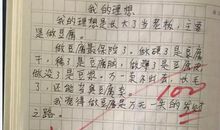 我的理想
我的理想是长大了当老板,主要
是做豆腐。
做豆腐最保险了,做硬了是豆腐
干,稀了是豆腐脑,做薄了是豆腐皮
做没了是豆浆,万一卖不出去,放臭
了,还能当臭豆腐卖。
我觉得做豆腐是万无一失的发财
之路。
100